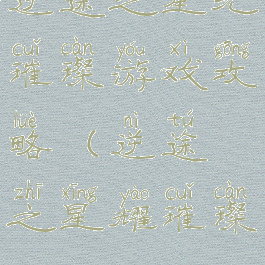 cuǐ càn yóu xì gōng
璀璨游戏攻
lüè nì tú
略（逆途
zhī xīng yào cuǐ càn
之星耀璀璨